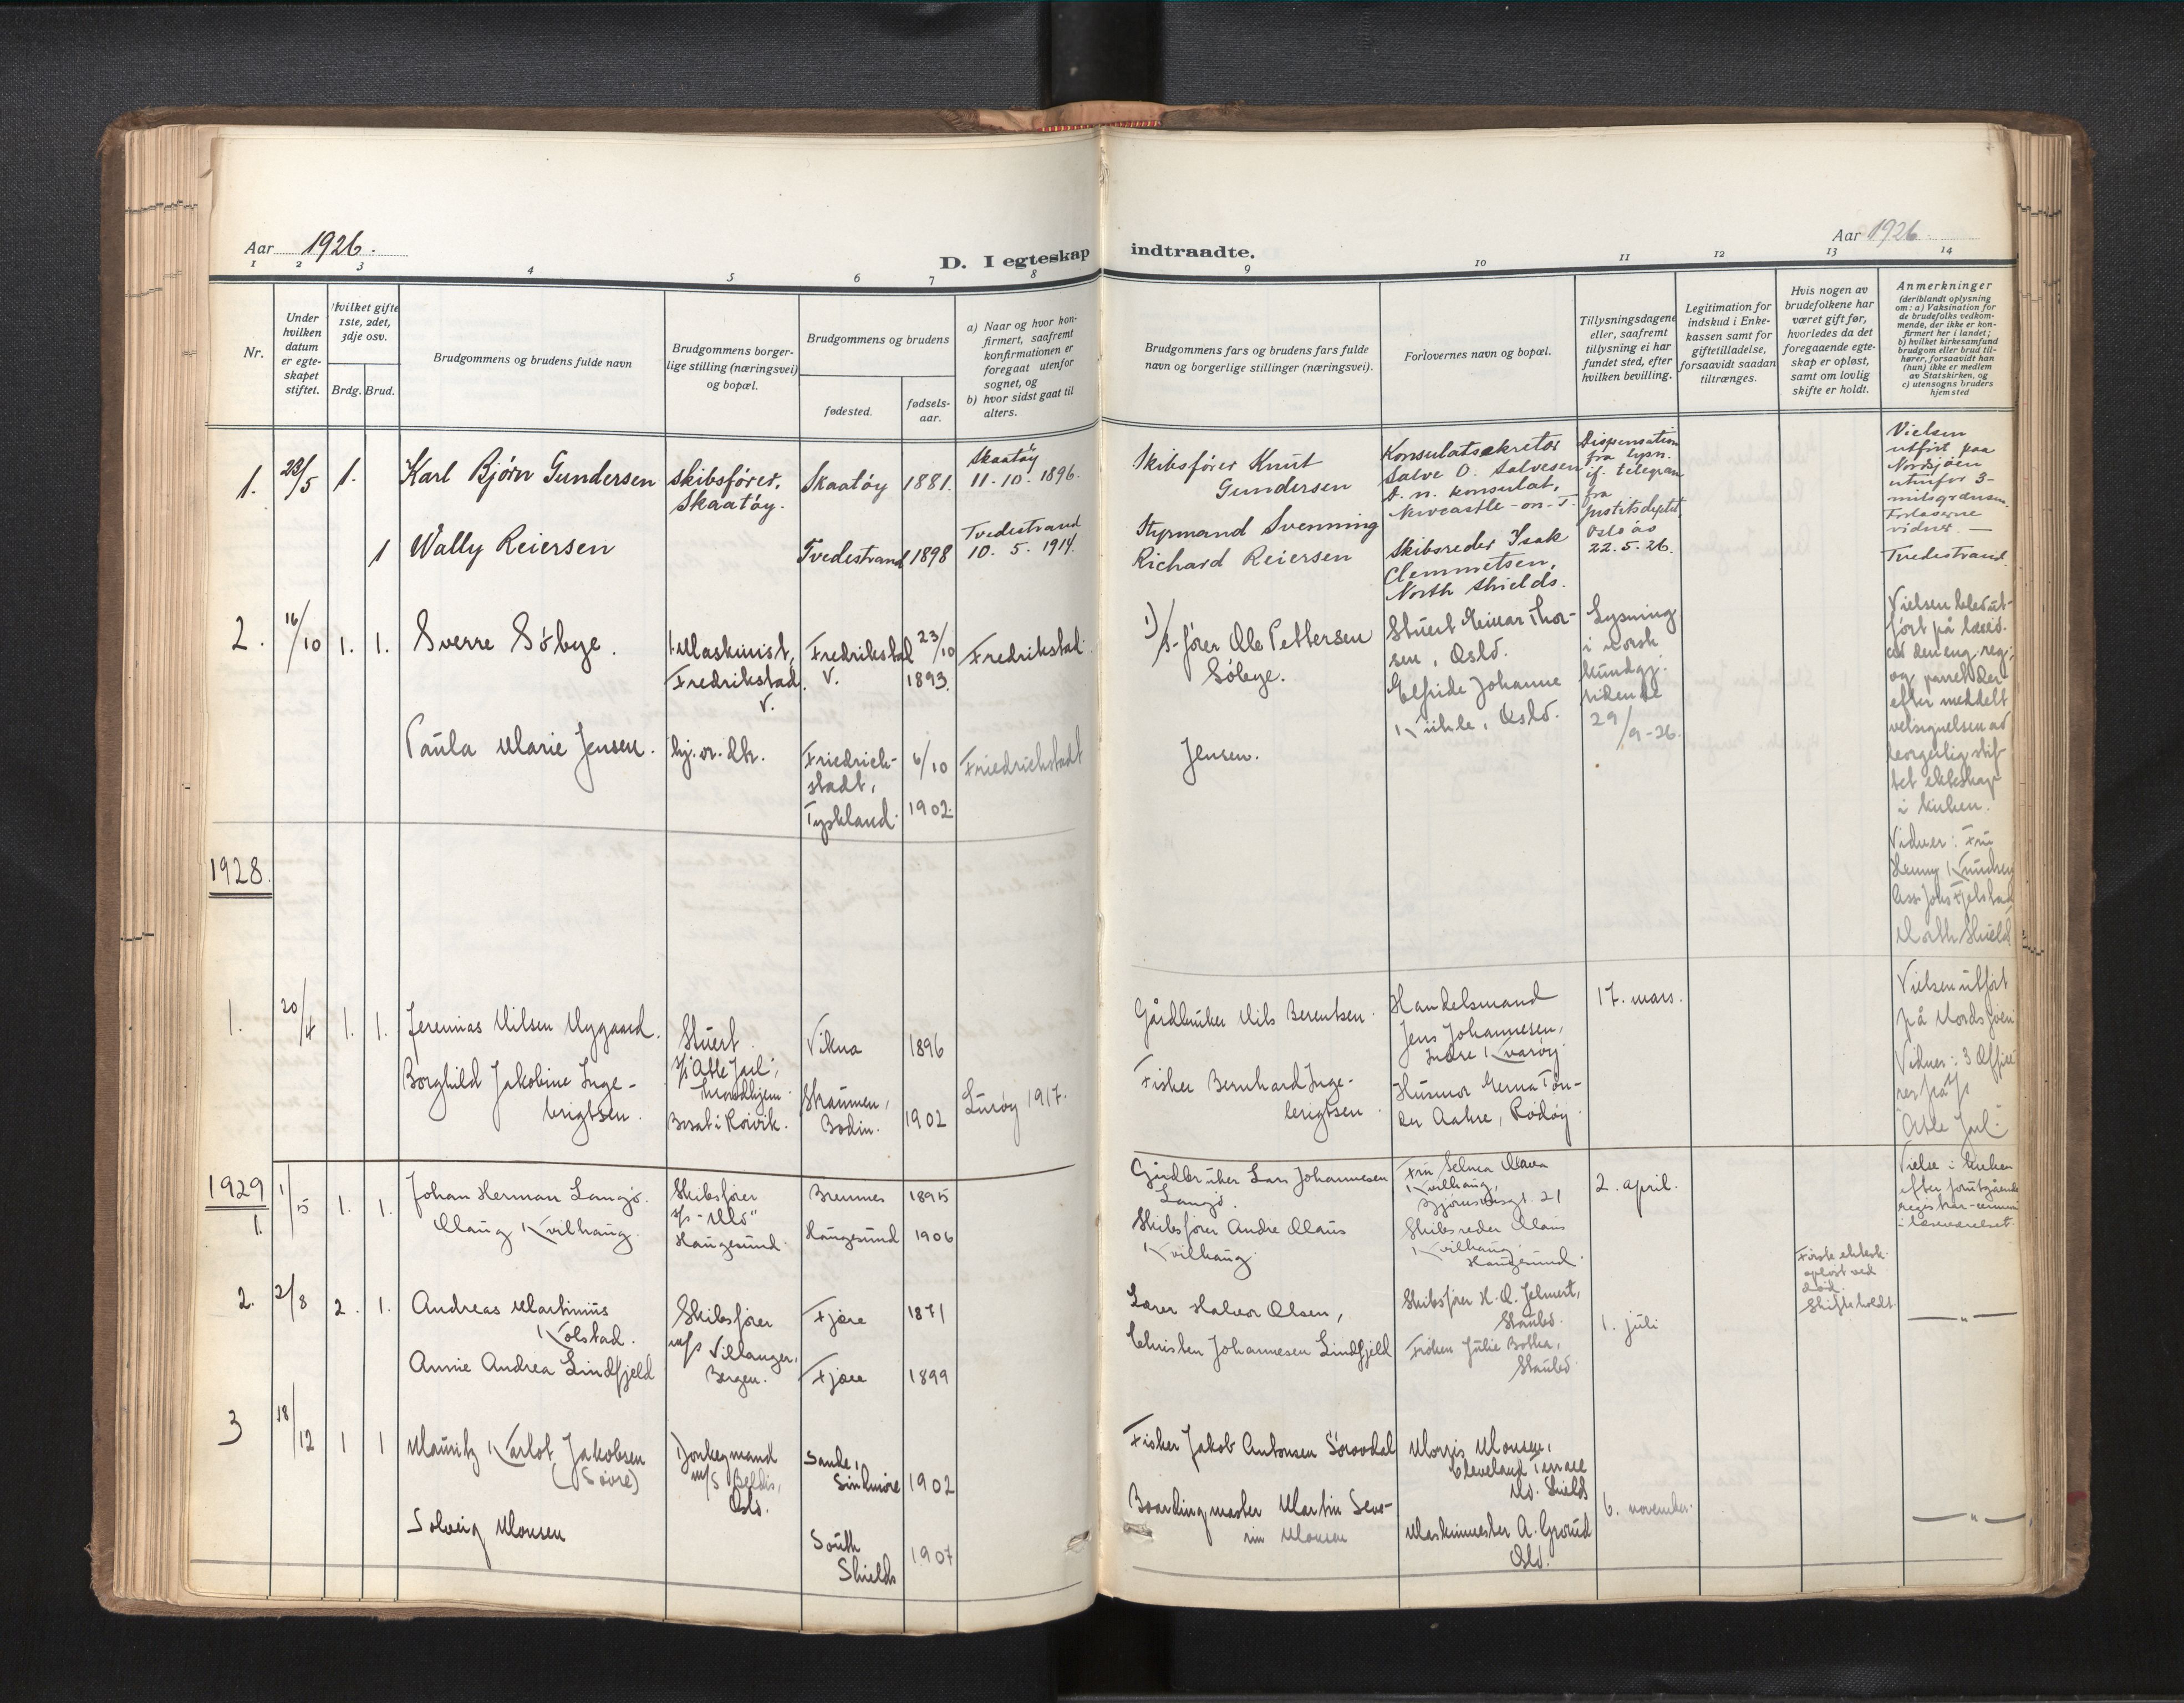 Aar 1926.
D. I egteskap indtraadte.
Aar 1926
1 2 3 4 5 6 7 8 9 10 11 12 13 14
Nr.
Under hvilken datum er egteskapet stiftet.
Hvilket gifte 1ste, 2det, 3dje osv.
Brdg. Brud.
Brudgommens og brudens fulde navn
Brudgommens borgerlige stilling (næringsvei) og bopæl.
Brudgommens og brudens
fødested.
fødselsaar.
a) Naar og hvor konfirmert, saafremt konfirmationen er foregaat utenfor sognet, og
b) hvor sidst gaat til alters.
Brudgommens fars og brudens fars fulde navn og borgerlige stillinger (næringsvei).
Forlovernes navn og bopæl.
Tillysningsdagene eller, saafremt tillysning ei har fundet sted, efter hvilken bevilling.
Legitimation for indskud i Enkekassen samt for giftetilladelse, forsaavidt saadan tiltrænges.
Hvis nogen av brudefolkene har været gift før, hvorledes da det foregaaende egteskap er opløst, samt om lovlig skifte er holdt.
Anmerkninger
(deriblandt oplysning om: a) Vaksination for de brudefolks vedkommende, der ikke er konfirmert her i landet; b) hvilket kirkesamfund brudgom eller brud tilhører, forsaavidt han (hun) ikke er medlem av Statskirken, og c) utensogns bruders hjemsted
1. 22/5 1.
Karl Bjørn Gundersen
skibsfører, Skaatøy.
Skaatøy 1881.
Skaatøy 11. 10. 1896.
Skibsfører Knut Gundersen
Konsulatsekretær Salve O. Salvesen d. n. konsulat, Newcastle-on-T.
Dispensation fra lysn. if. telegram fra Justitsdeptet Oslo av 22.5.26.
Vielsen utført paa Nordsjøen utenfor 3-milsgrænsen.
1
Wally Reiersen
Tvedestrand 1898
Tvedestrand 10. 5. 1914.
Styrmand Svenning Richard Reiersen
Skibsreder Isak Clemmetsen, North Shields.
Tvedestrand.
2. 16/10 1. 1.
Sverre Søbye.
Maskinist, Fredrikstad V.
Fredrikstad V.
23/10 1893.
Fredrikstad
1) S-fører Ole Pettersen Søbye.
Stuert Einar Thorsen, Oslo.
Elfride Johanne Kühle, Oslo.
Lysning i norsk kundgj. tidende 29/9-26.
Vielsen blev utført på
og parret der efter meddelt velsignelsen av borgerlig stiftet ekteskap i kirken.
Vidner: Fru
North Shields
Paula Marie Jensen.
Friedrichstadt, Tyskland.
6/10 1902.
Friedrichstadt
Jensen.
1928.
1. 20/4 1. 1.
Jeremias Nilsen Nygaard.
Stuert S/S "Atle Jarl", Trondhjem
Vikna 1896
Gårdbruker Nils Berentsen.
Handelsmand Jens Johannesen, Indre Kvarøy.
17. mars.
Vielsen utført på Nordsjøen
Vidner: 3 Officerer fra S/S "Atle Jarl".
Borghild Jakobine Ingebrigtsen.
Straumen, Bodin.
1902
Lurøy 1917.
Fisker Bernhard Ingebrigtsen.
Aakre, Rødøy.
1929
1. 1/5 1. 1.
Johan Herman Langø.
Skibsfører
Haugesund
Bremnes 1895
Gårdbruker Lars Johannesen Langø.
Kvilhaug,
2. april.
Vielse i kirken efter forutgående
Maug Kvilhaug
Haugesund 1906
Skibsfører Andre Maus Kvilhaug.
Skibsreder Maus Kvilhaug, Haugesund.
2. 2/8 2. 1.
Andreas Martinius Kolstad.
Skibsfører m/s Villanger, Bergen.
Fjære 1871
Lærer Halvor Olsen,
Skibsfører H. O. Jelmert, Staubø.
1. juli
Første ektesk. opløst ved død.
Skifte holdt.
— " —
Annie Andrea Lindfjeld
Fjære 1899
Christen Johannesen Lindfjeld
Frøken Julie Bothe, Staubø.
3 18/12 1 1
Mauritz Karlot Jakobsen
Donkeymand m/s Beldis, Oslo.
Sande, Sundmøre 1902
Fisker Jakob Antonsen
Morris Monsen, Cleveland Terrace No. Shields
6. november.
— " —
Solveig Monsen
South Shields 1907
Boardingmaster Martin Severin Monsen
Maskinmester A. Grorud Oslo.